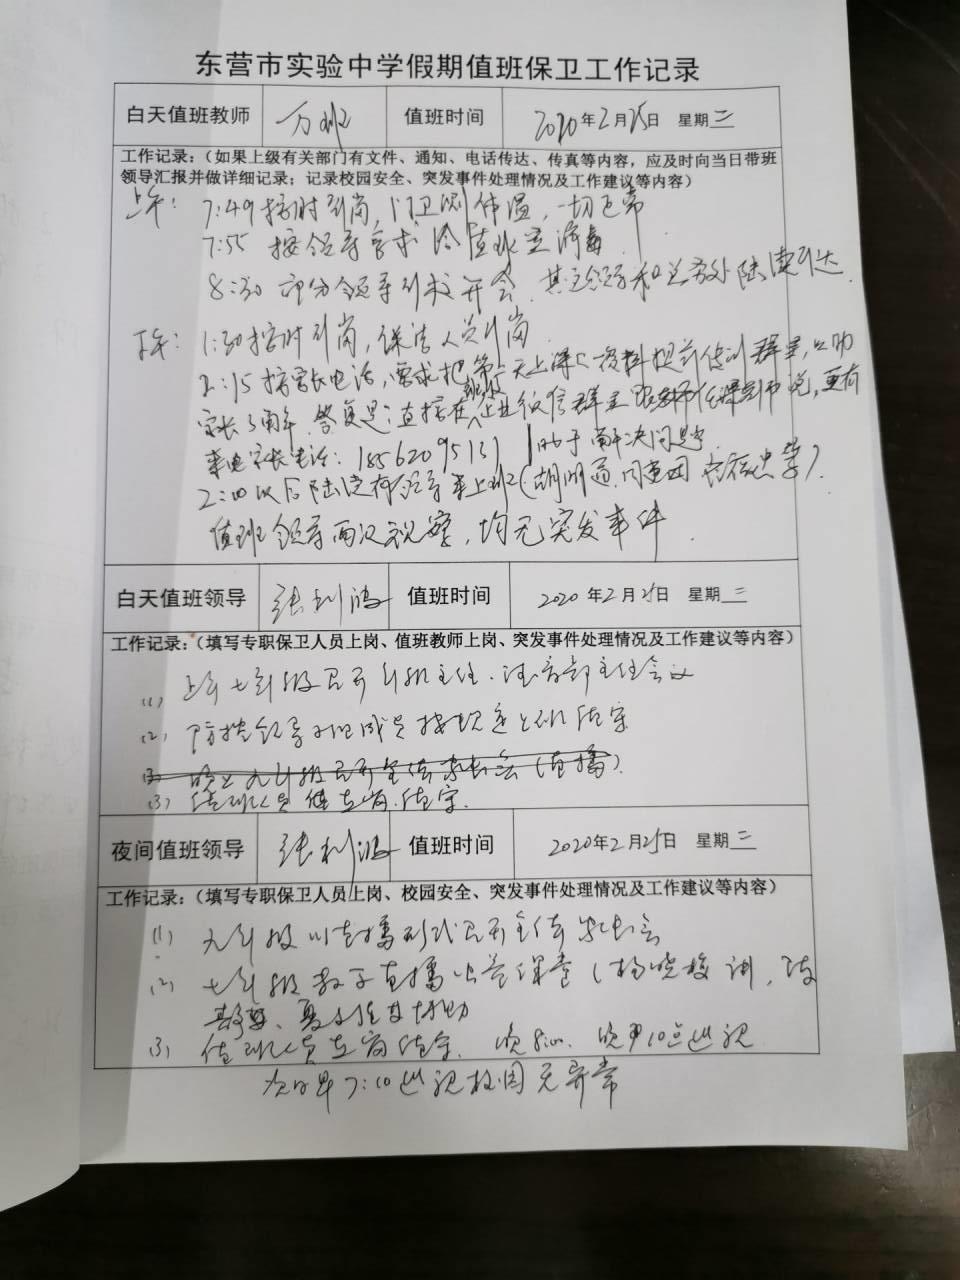 东营市实验中学假期值班保卫工作记录
白天值班教师 万 值班时间 2020年2月25日 星期二
工作记录：（如果上级有关部门有文件、通知、电话传达、传真等内容，应及时向当日带班
领导汇报并做详细记录；记录校园安全、突发事件处理情况及工作建议等内容）
上午：7:49按时到岗，门卫测体温，一切正常
7:55 按领导要求给值班室消毒
8:30 部分领导到校开会，其它领导和总务处陆续到达
下午：1:30按时到岗，保洁人员到岗
2:15 接家长电话，要求把第二天上课资料提前传到群里，以助
家长了解。答复是：直接在班级微信群里跟老师任课老师说，更有
来电家长电话：18562095131 助于解决问题
2:40以后陆续有领导来上班（胡明道、闫
值班领导两次视察，均无突发事件
白天值班领导 张利 值班时间 2020年2月25日 星期二
工作记录：（填写专职保卫人员上岗、值班教师上岗、突发事件处理情况及工作建议等内容）
(1) 上午七年级召开班主任、德育部主任会议
(2) 防控领导小组成员按规定上班值守
(3) 晚上九年级召开全体家长会（直播）
(3) 值班人员在岗值守
夜间值班领导 张利 值班时间 2020年2月25日 星期二
工作记录：（填写专职保卫人员上岗、校园安全、突发事件处理情况及工作建议等内容）
(1) 九年级以直播形式召开全体家长会
(2) 七年级 直播公益课堂（杨晓 讲，
协助
(3) 值班人员在岗值守 晚 晚10点巡视
次日早7:10巡视校园无异常